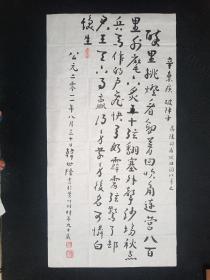 辛弃疾 破阵子
为陈同甫赋壮词以寄之
醉里挑灯看剑梦回吹角连营八百
里分麾下炙五十弦翻塞外声沙场秋点
兵马作的卢飞快弓如霹雳弦惊了却
君王天下事赢得生前身后名可怜白
发生
公元二〇一一年八月三十日韩世隆